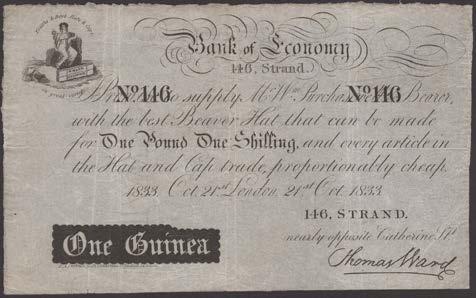 Bank of Economy
146, Strand.
No 146 No 146
to supply Mr. Wm. Purchas Bearer,
with the best Beaver Hat that can be made
for One Pound One Shilling, and every article in
the Hat and Cap trade, proportionably cheap.
1833 Oct. 21st London, 21st Oct. 1833
146, STRAND.
nearly opposite Catherine St.
One Guinea
Thomas Ward